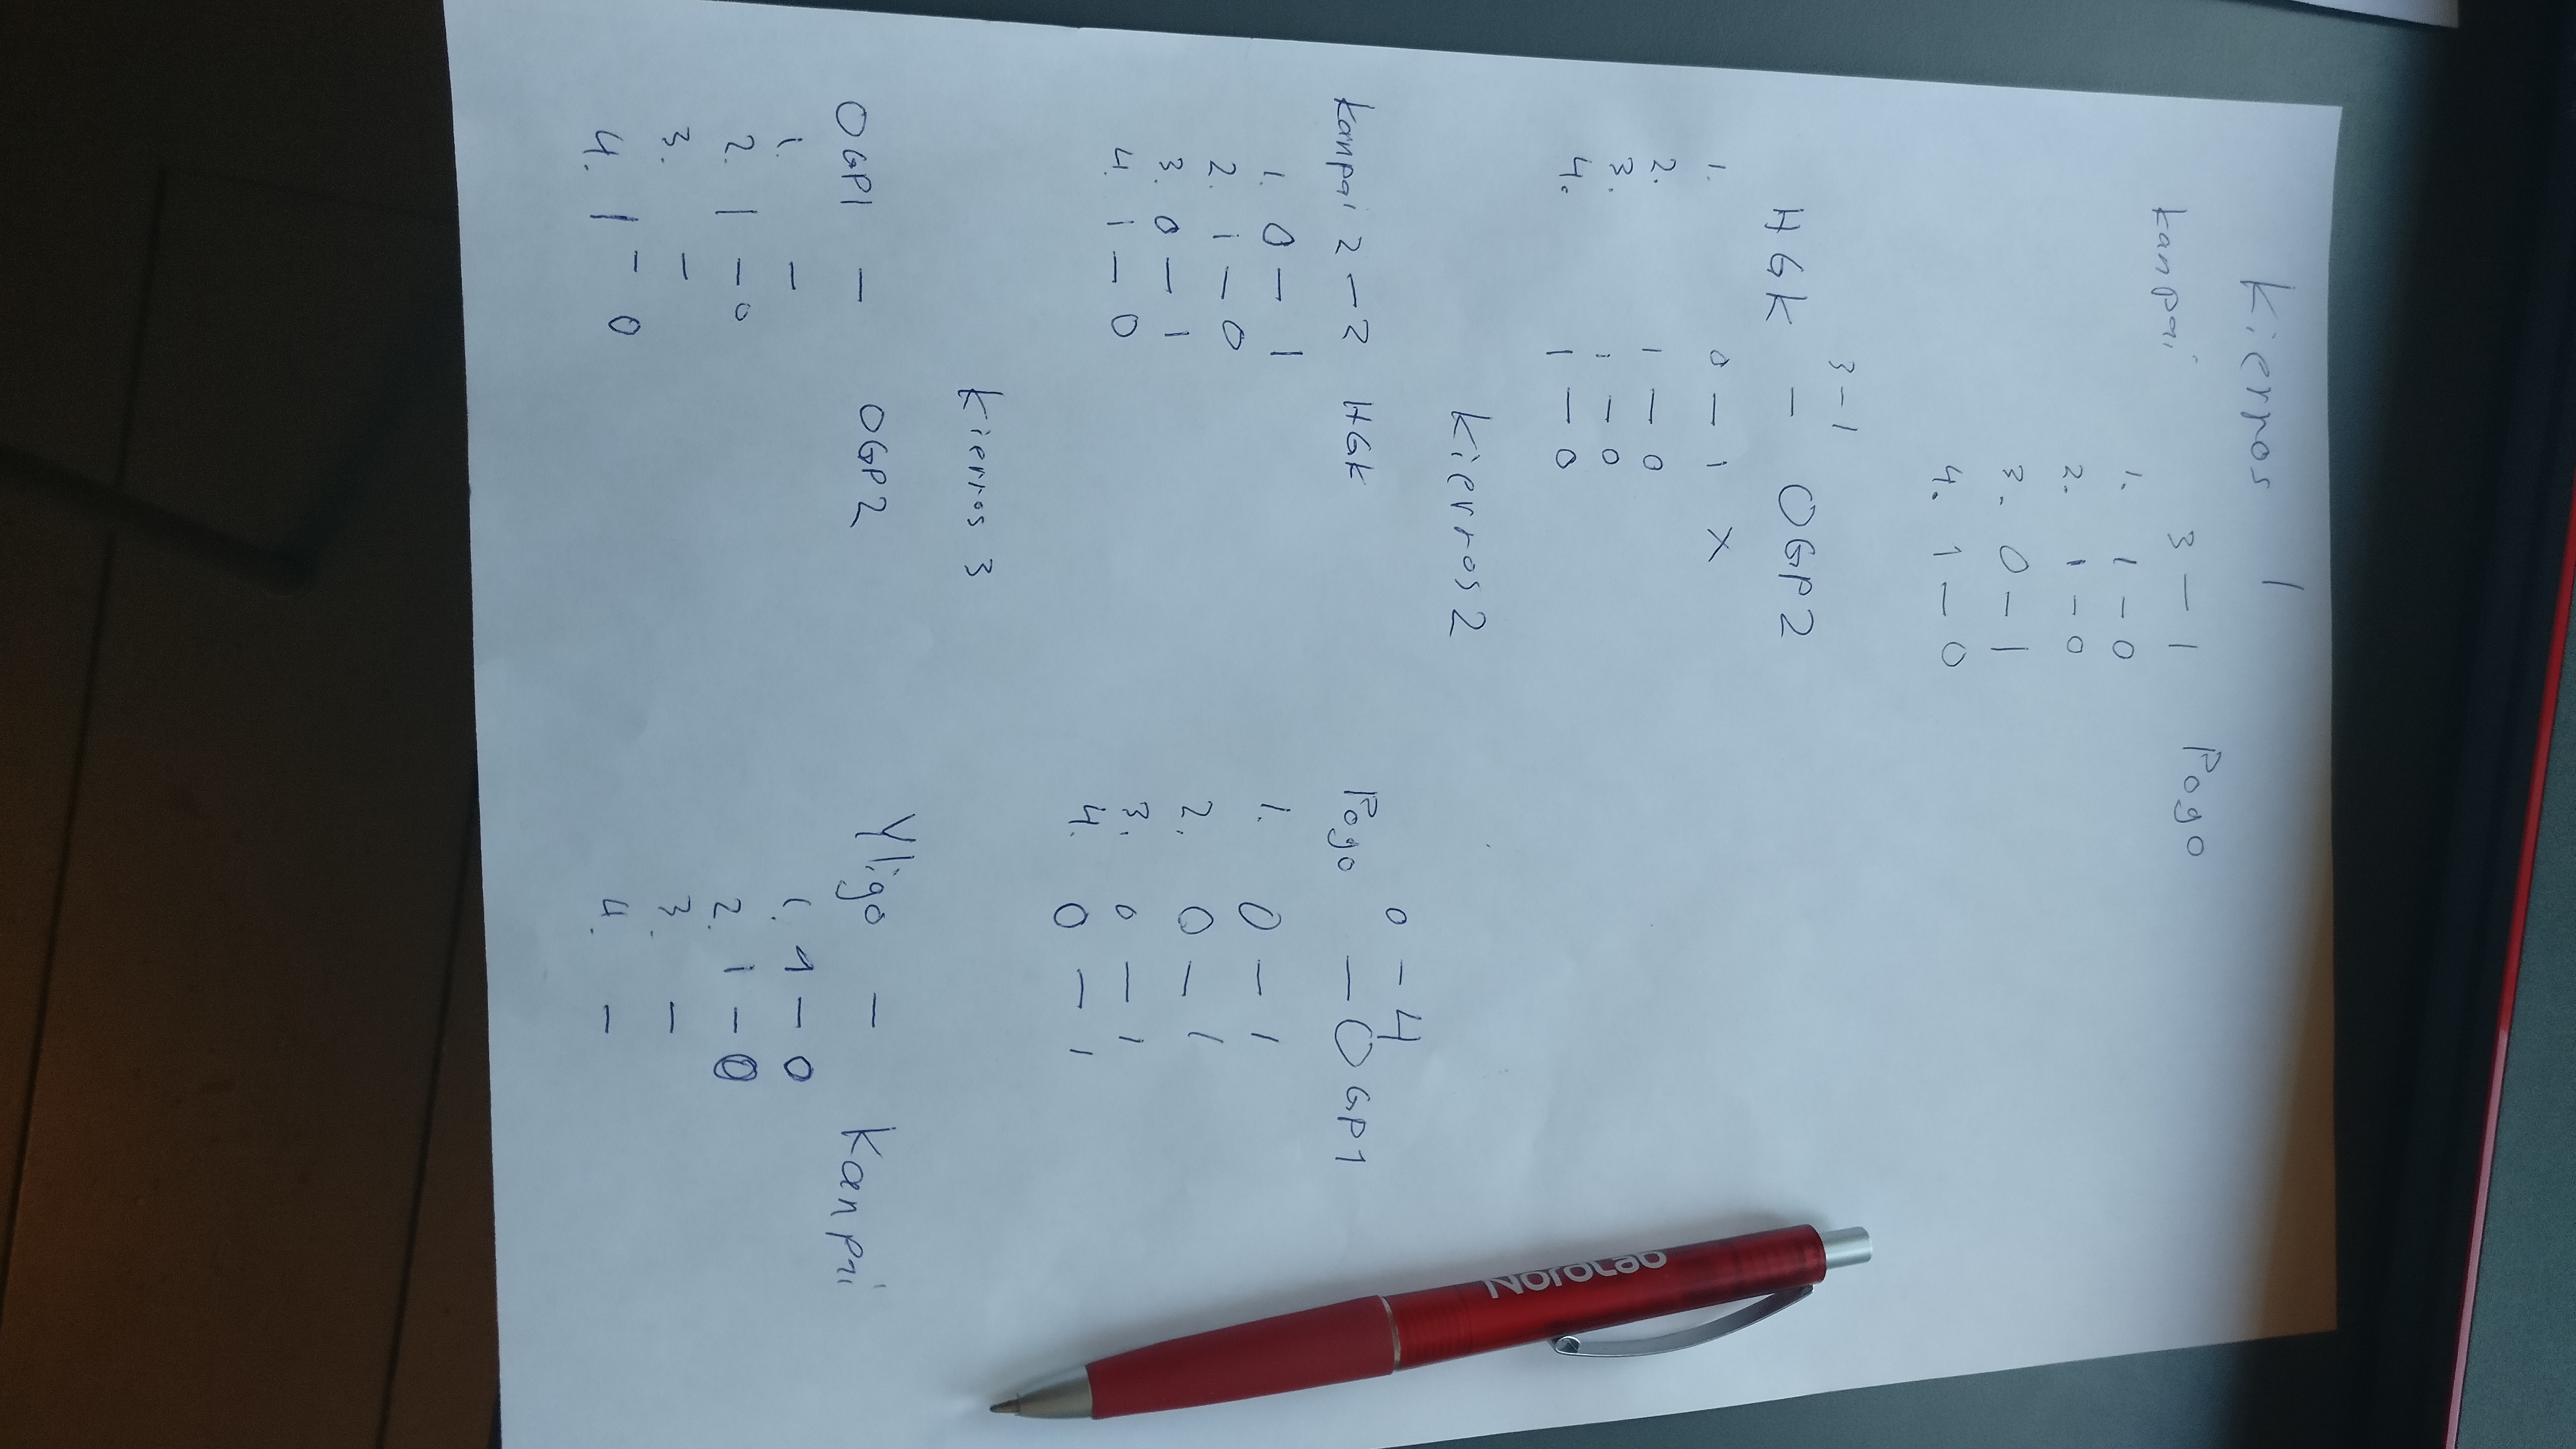 Kierros 1
Kanpai 3 – 1 Pogo
1. 1 – 0
2. 1 – 0
3. 0 – 1
4. 1 – 0
3 – 1
HGK – OGP2
1. 0 – 1 X
2. 1 – 0
3. 1 – 0
4. 1 – 0
Kierros 2
Kanpai 2 – 2 HGK
1. 0 – 1
2. 1 – 0
3. 0 – 1
4. 1 – 0
0 – 4
Pogo – OGP1
1. 0 – 1
2. 0 – 1
3. 0 – 1
4. 0 – 1
Kierros 3
OGP1 – OGP2
1. –
2. 1 – 0
3. –
4. 1 – 0
Yligo – Kanpai
1. 1 – 0
2. 1 – 0
3. –
4. –
NordLab